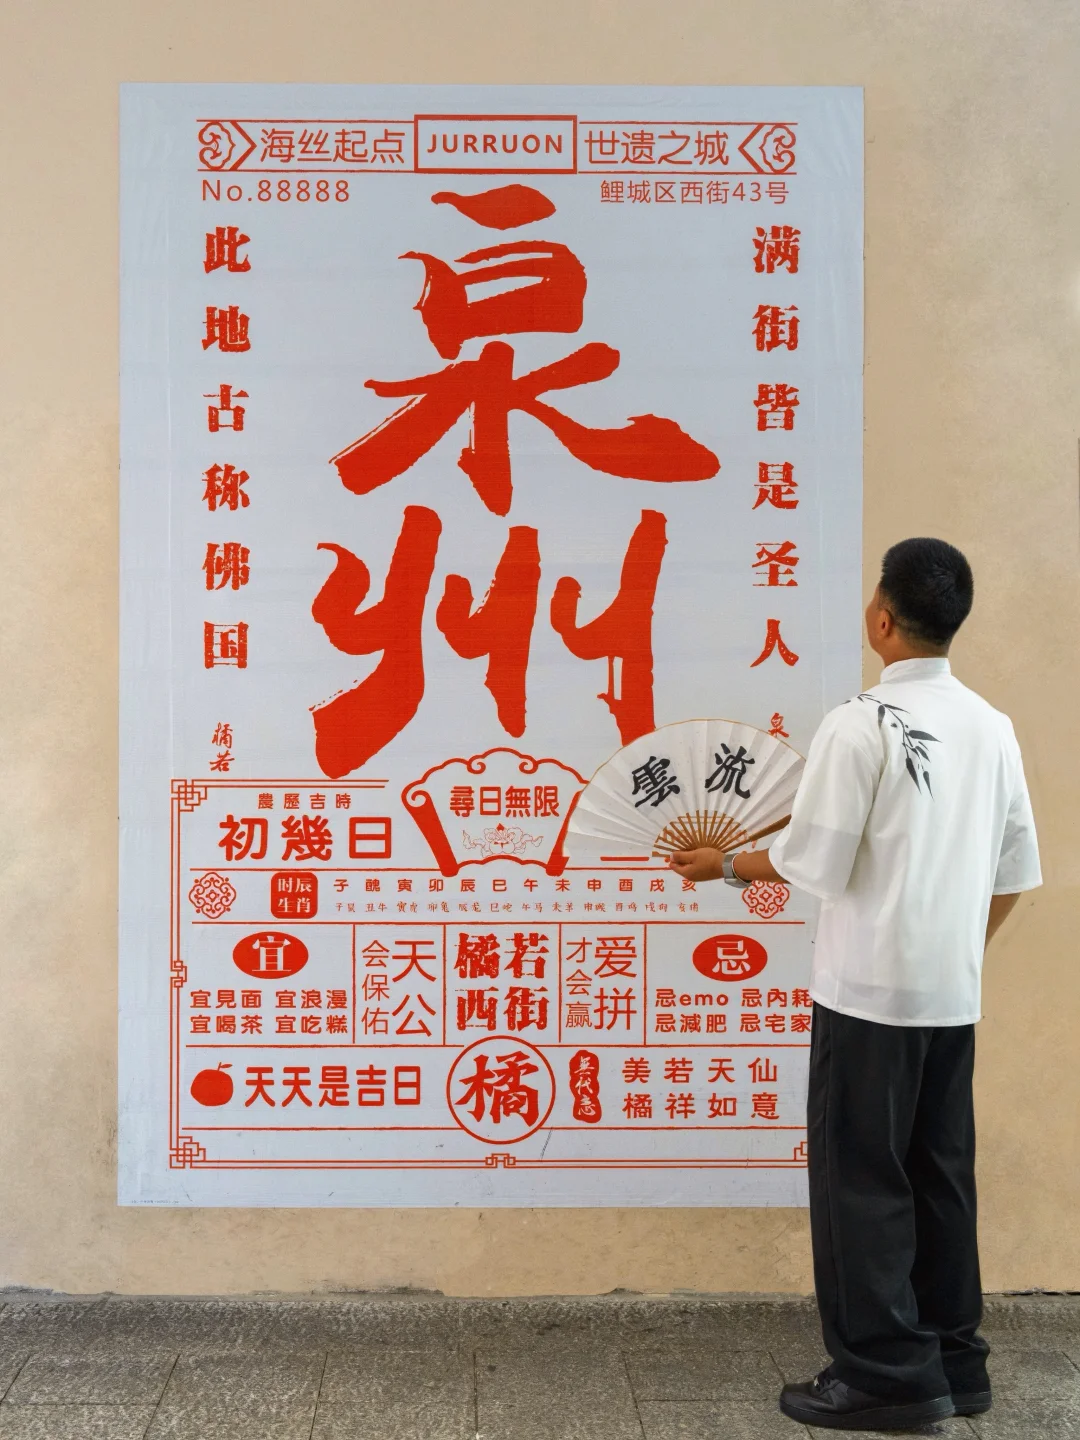 海丝起点 JURRUON 世遗之城
No.88888 鲤城区西街43号
此地古称佛国
泉州
满街皆是圣人
橘若
泉
農歷吉時
初幾日
尋日無限
雲流
时辰
生肖
子 醜 寅 卯 辰 巳 午 未 申 酉 戌 亥
宜
宜見面 宜浪漫
宜喝茶 宜吃糕
天公
会保佑
橘若
西街
爱拼
才会赢
忌
忌emo 忌內耗
忌減肥 忌宅家
天天是吉日
橘
美若天仙
橘祥如意